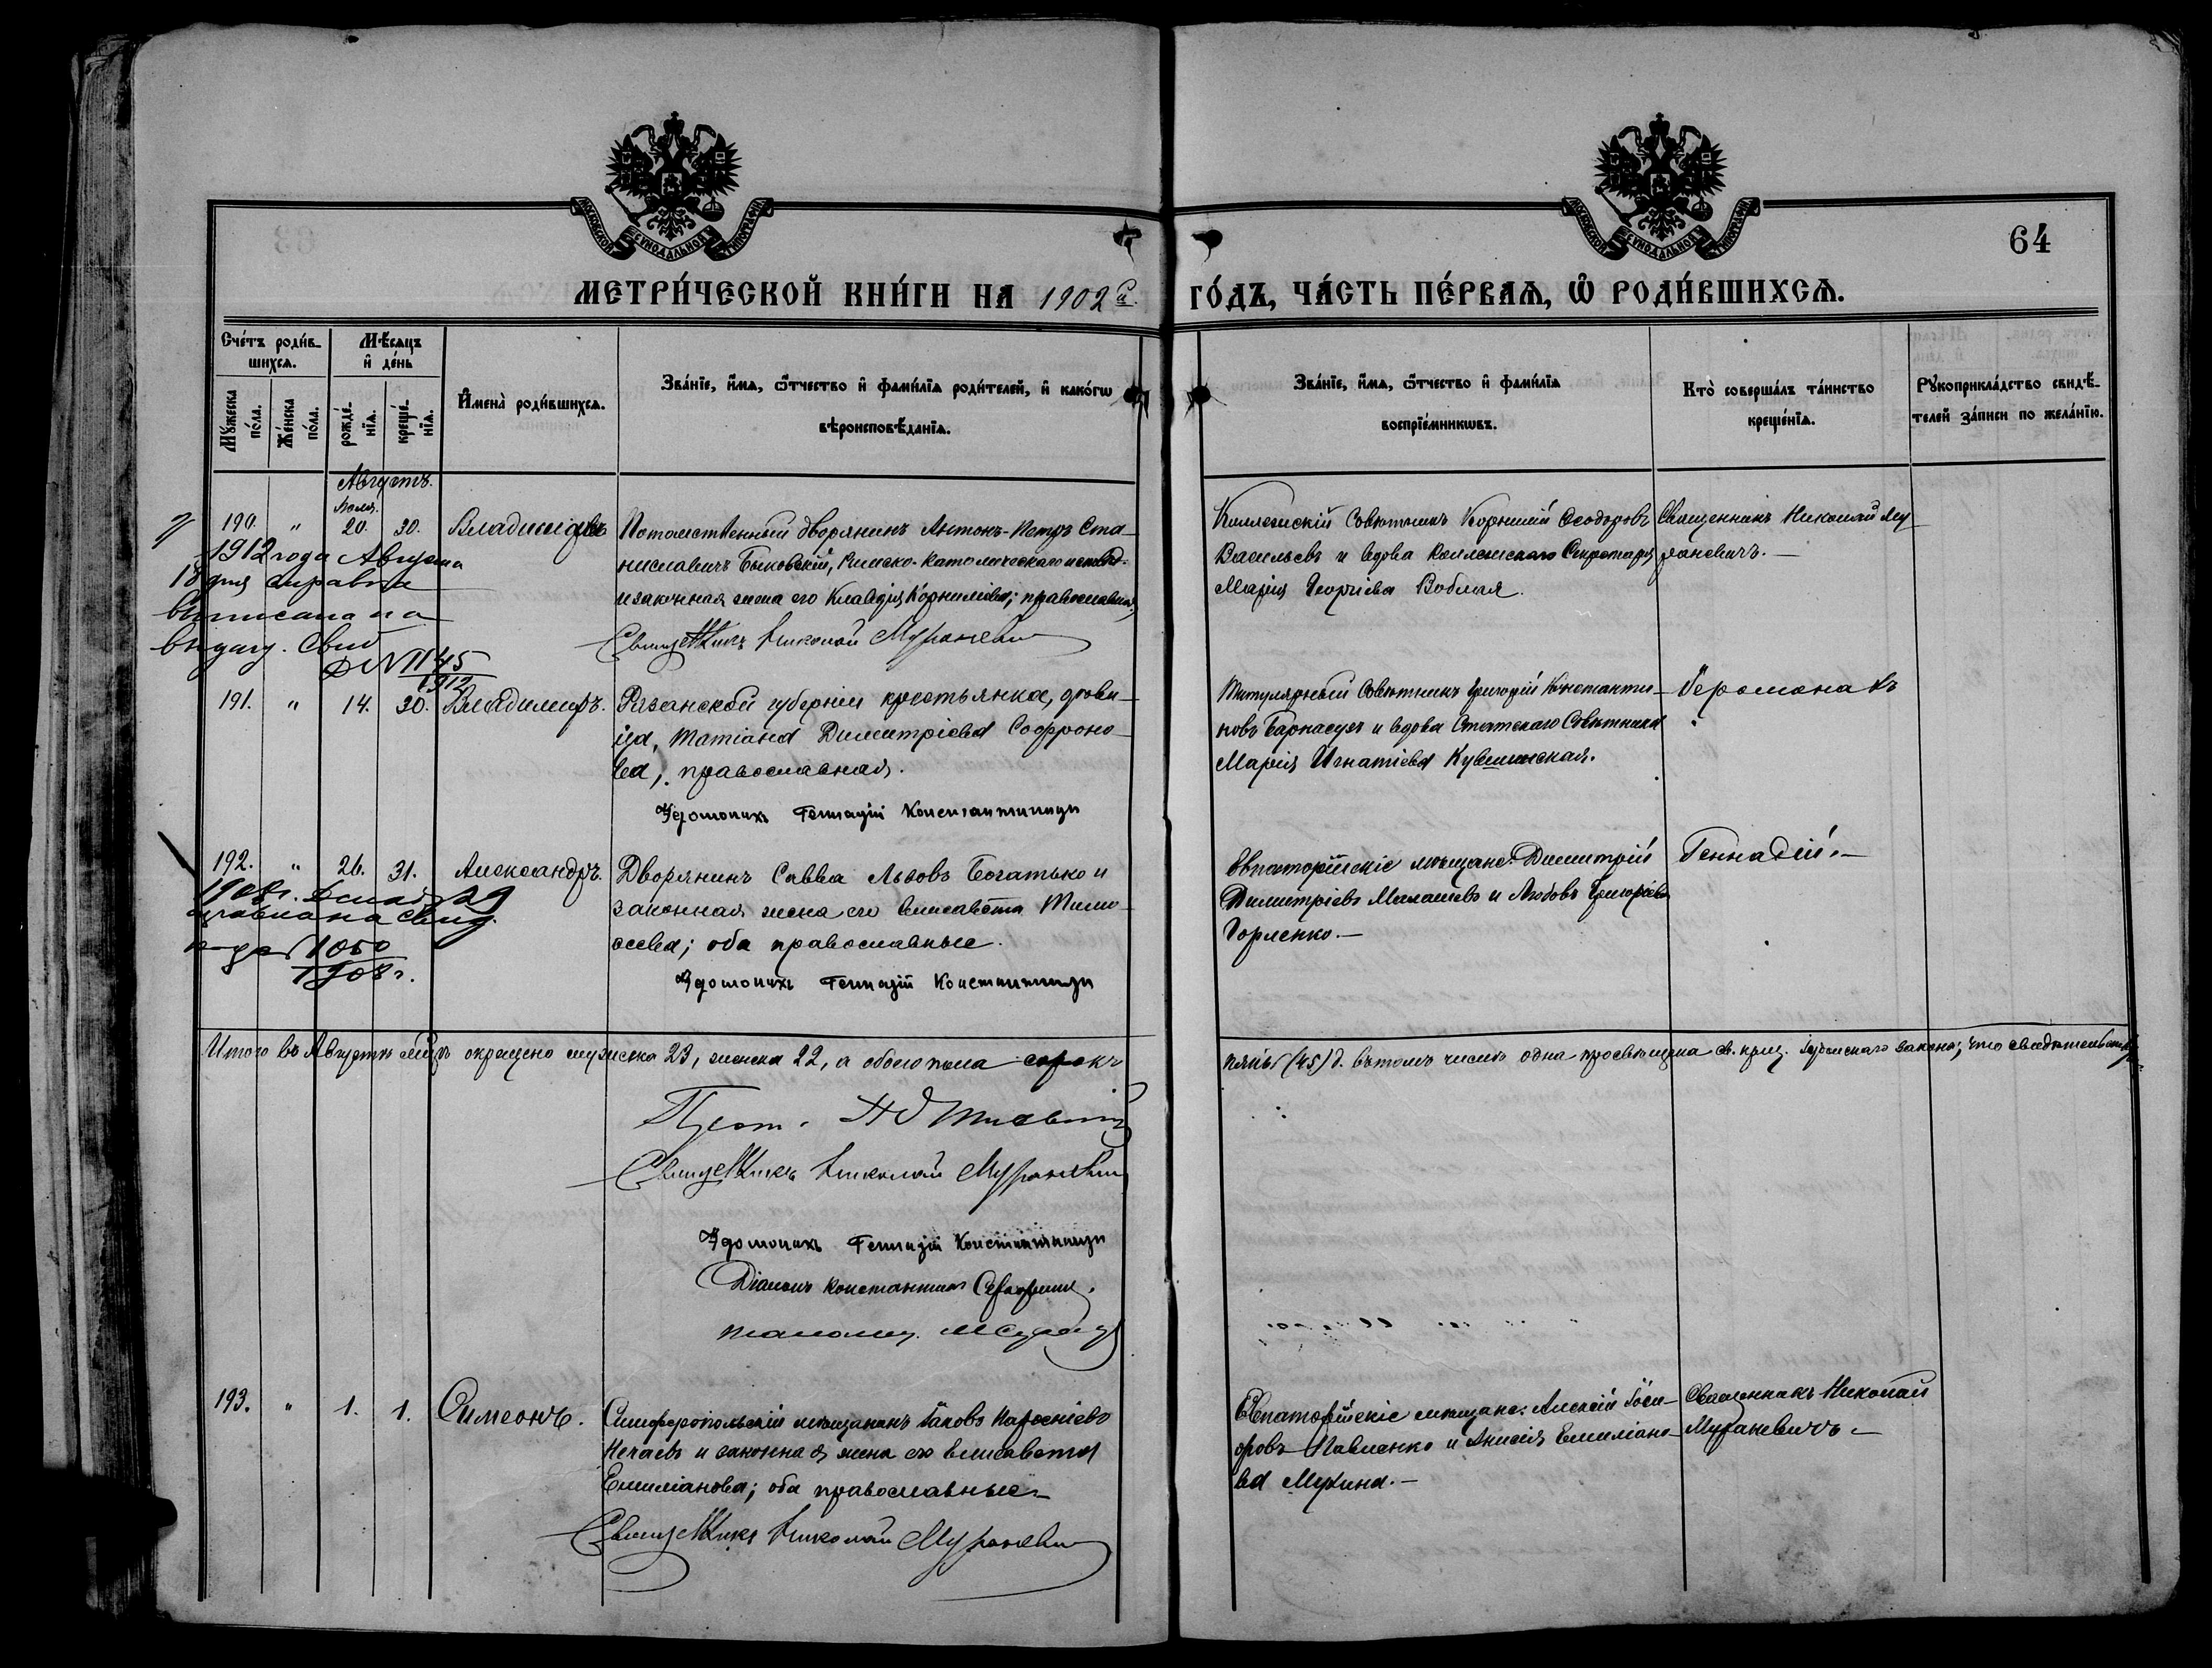 МОСКОВСКОЙ СѴНОДАЛЬНОЙ ТИПОГРАФІИ
МОСКОВСКОЙ СѴНОДАЛЬНОЙ ТИПОГРАФІИ
64
МЕТРИ́ЧЕСКОЙ КНИ́ГИ НА 1902й
ГО́ДЪ, ЧА́СТЬ ПЕ́РВАѦ, Ѡ҆ РОДИ́ВШИХСѦ.
Сче́тъ роди́в-
шихсѧ.
Мꙋ́жеска по́ла.
Же́нска по́ла.
Мѣ́сѧцъ
и҆ де́нь
рожде́-
нїѧ.
креще́-
нїѧ.
И҆мена̀ роди́вшихсѧ.
Зва́нїе, и҆́мѧ, ѻ҆́тчество и҆ фами́лїѧ роди́телей, и҆ како́гѡ
вѣроисповѣ́данїѧ.
Зва́нїе, и҆́мѧ, ѻ҆́тчество и҆ фами́лїѧ
воспрїе́мникѡвъ.
Кто̀ соверша́лъ та́инство
креще́нїѧ.
Рꙋкоприкла́дство свидѣ́-
телей за́писи по жела́нїю.
Августъ.
Іюля.
190. " 20. 30. Владиміръ
Потомственный дворянинъ Антонъ-Петръ Ста-
ниславичъ Быковскій, Римско-католическаго исповѣд.
и законная жена его Клавдія Корниліева; православная.
Священникъ Николай Мураневич
Коллежскій Совѣтникъ Корнилій Ѳеодоровъ
Васильевъ и вдова Коллежскаго Секретаря
Марія Георгіева Воблая.
Священникъ Николай Му-
раневичъ.—
1912 года Августа
18 дня справка
выписана на
выдачу. Свид
№ 1145
1912
191. " 14. 30. Владимиръ.
Рязанской губерніи крестьянка, дѣви-
ца, Татіана Димитріева Софроно-
ва, православная.
Іеромонахъ Геннадій Константиниди
Титулярный Совѣтникъ Григорій Константи-
новъ Барнасухъ и вдова Статскаго Совѣтника
Марія Игнатіева Кувшинская.
Іеромонахъ
192. " 26. 31. Александръ.
Дворянинъ Савва Львовъ Богатько и
законная жена его Елисавета Тимо-
ѳеева; оба православные.
Іеромонахъ Геннадій Константиниди
Евпаторійскіе мѣщане: Димитрій
Димитріевъ Малашевъ и Любовь Григоріева
Горленко.—
Геннадій.—
1908 г.
29
свид.
1050
1908 г.
Итого въ Августѣ мцѣ окрещено мужеска 23, женска 22, а обоего пола сорокъ
пять (45) д. въ томъ числѣ одна просвѣщена св. крещ. Еврейскаго закона;, что свидѣтельств
Прот.
Священникъ Николай Мураневич
Іеромонахъ Геннадій Константиниди
Діаконъ Константинъ Серафимов.
Псаломщ.
193. " 1. 1. Симеонъ.
Симферопольскій мѣщанинъ Іаковъ Парѳеніевъ
Нечаевъ и законная жена его Елисавета
Емиліанова; оба православные.—
Священникъ Николай Мураневич
Евпаторійскіе мѣщане: Алексій Іоси-
фовъ Павленко и Анисія Емиліано-
ва Мухина.—
Священникъ Николай
Мураневичъ.—